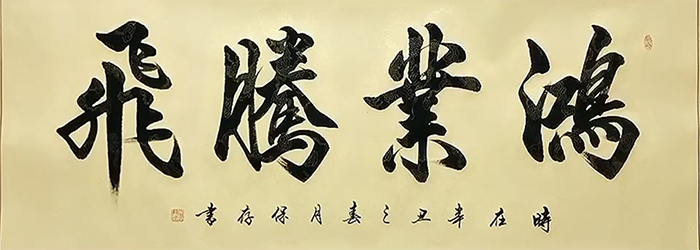 鴻業騰飛
時在辛丑之春月保存書